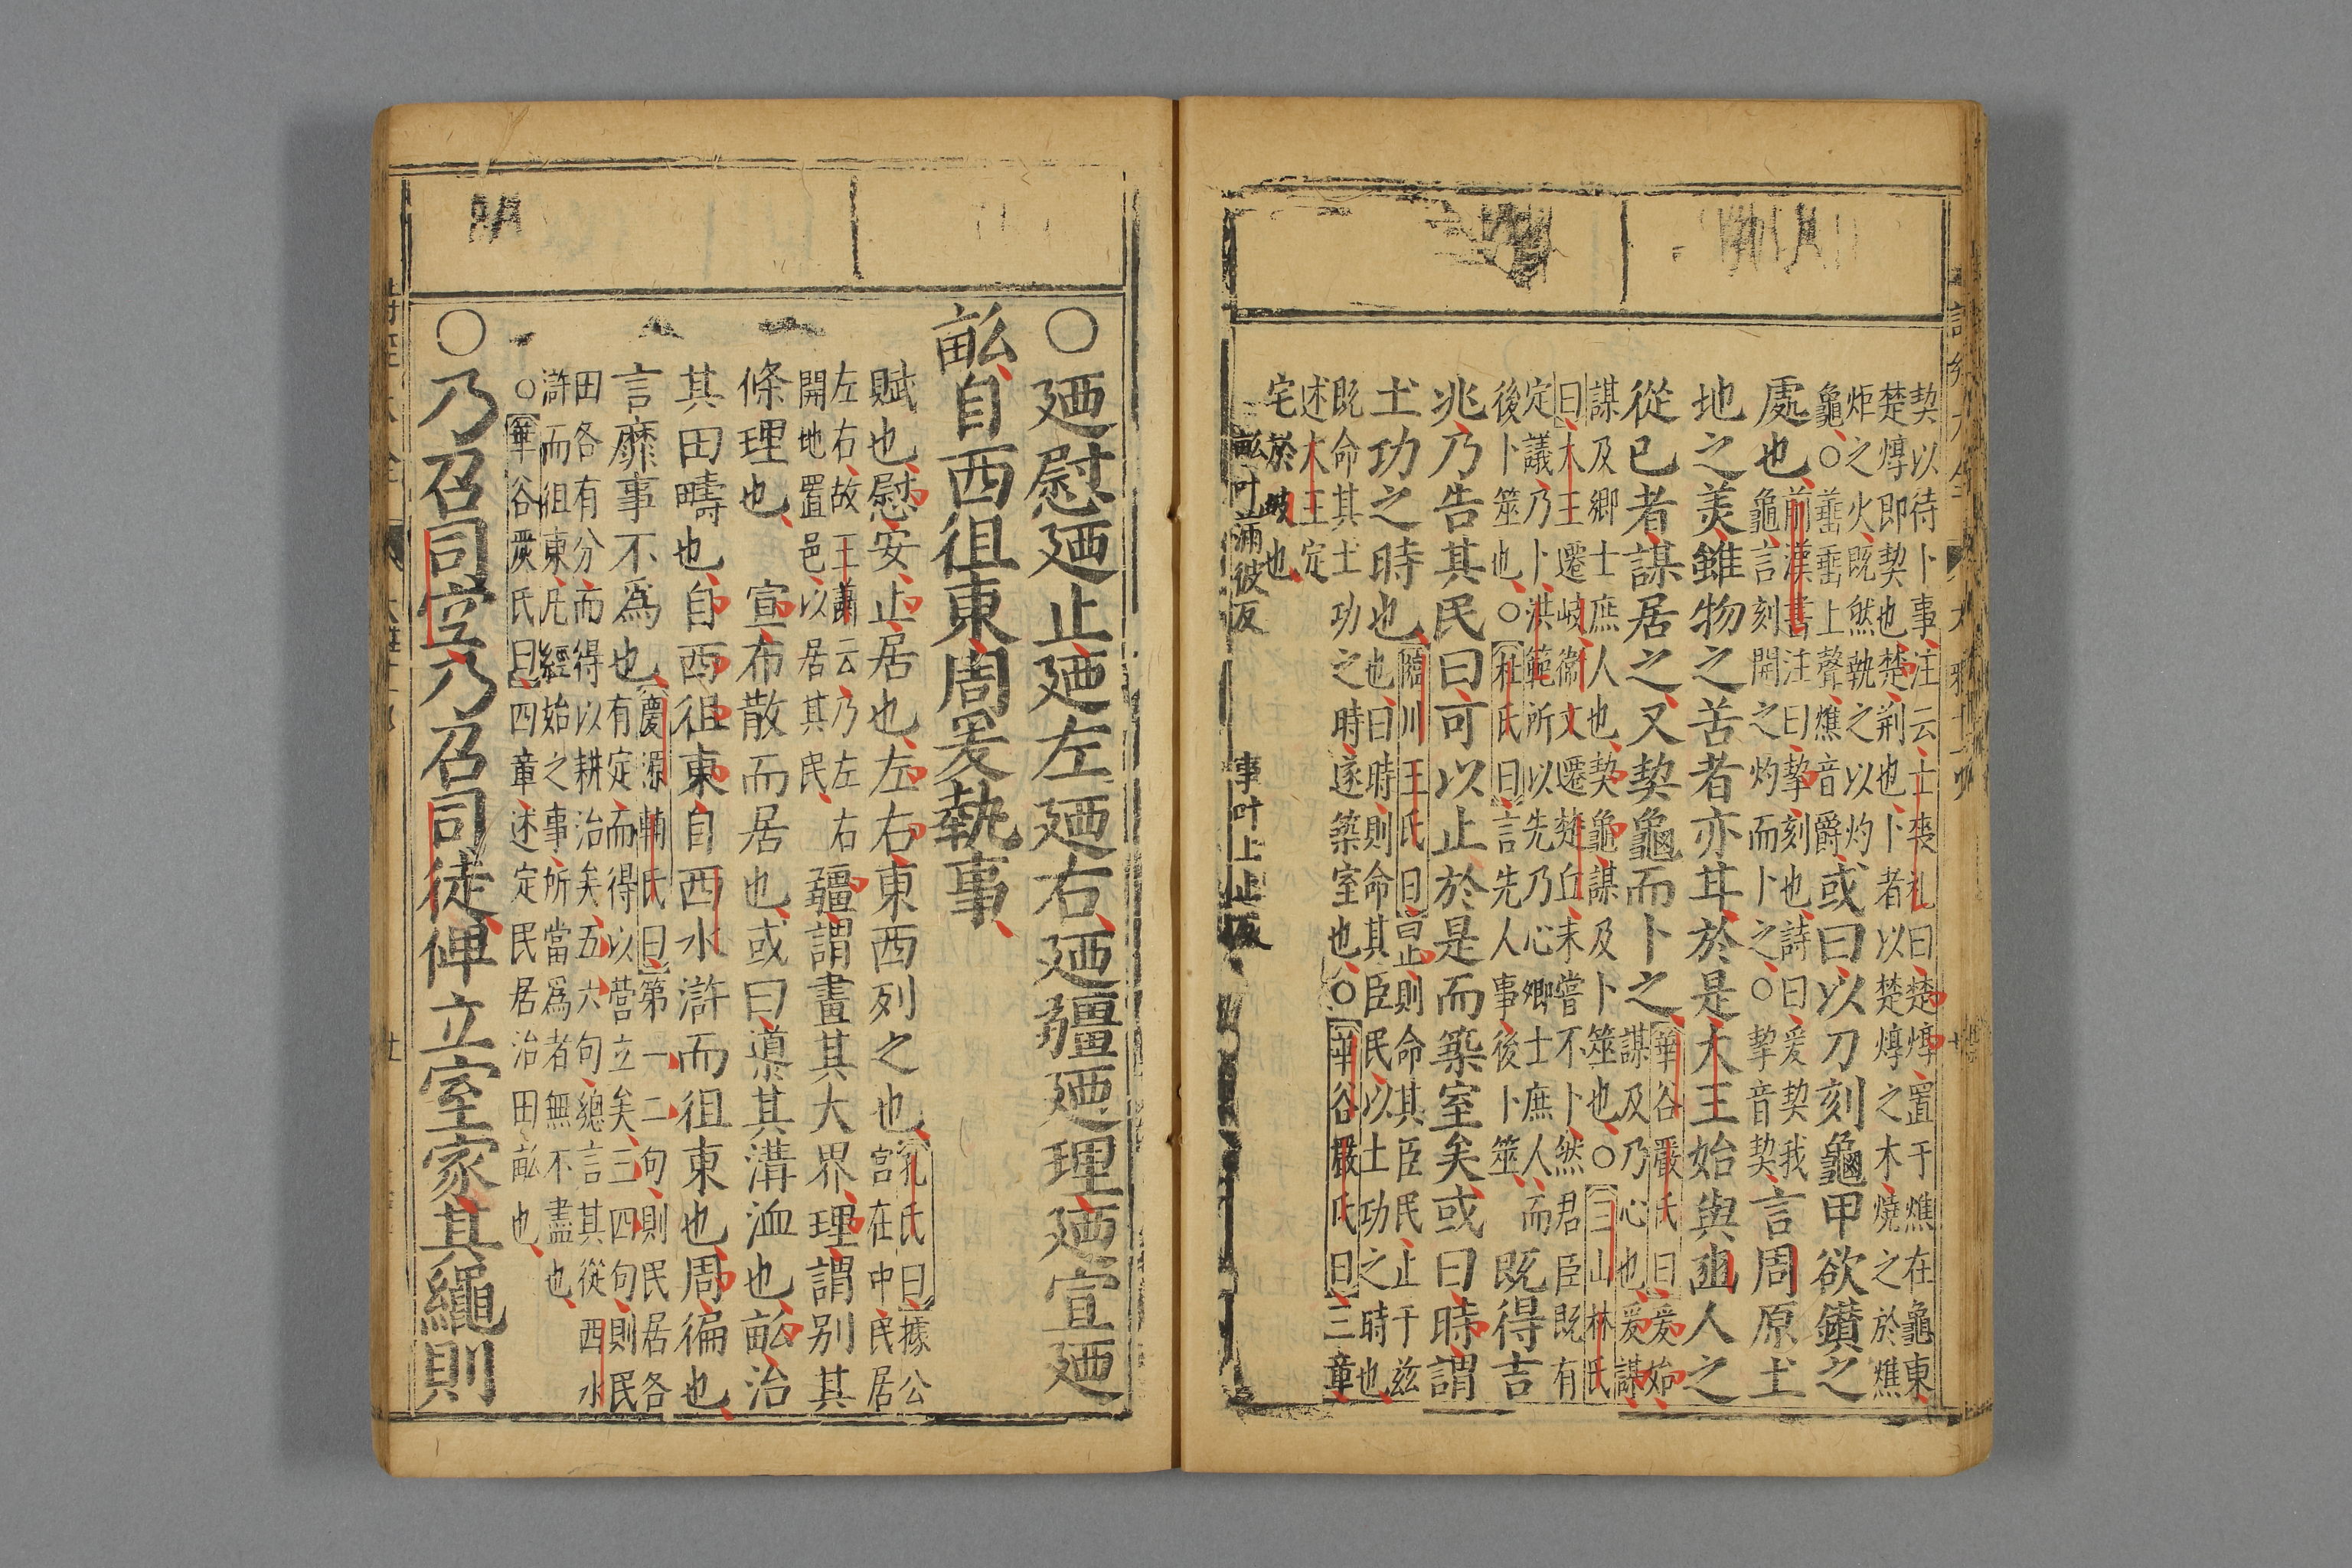 契以待卜事注云士喪礼曰楚焞置于燋在龜東
楚焞即契也楚荆也卜者以楚焞之木燒之於燋
炬之火既然執之以灼
龜○
之
前漢書注曰挈刻也詩曰爰契我
處也
龜言刻開之灼而卜之○挈音契
言周原土
地之美雖物之苦者亦甘於是大王始與豳人之
從已者謀居之又契龜而卜之
華谷嚴氏曰爰始
爰謀
謀及乃心也
謀及鄉士庶人也契龜謀及卜筮也○三山林氏
曰大王遷岐衞文遷楚丘未嘗不卜然君臣既有
定議乃卜洪範所以先乃心卿士庶人而
後卜筮也○杜氏曰言先人事後卜筮
既得吉
兆乃告其民曰可以止於是而築室矣或曰時謂
土功之時也
臨川王氏曰曰止則命其臣民止于兹
也曰時則命其臣民以土功之時也
既命其土功之時遂築室也○華谷嚴氏曰三章
述大王定
宅於岐也
○廼慰廼止廼左廼右廼疆廼理廼宣廼
畝
自西徂東周爰執事
事叶上止反
賦也慰安止居也左右東西列之也
孔氏曰據公
宮在中民居
左右故王肅云乃左右
開地置邑以居其民
疆謂畫其大界理謂别其
條理也宣布散而居也或曰導其溝洫也畝治
其田疇也自西徂東自西水滸而徂東也周徧也
言靡事不爲也
慶源輔氏曰第一二句則民居各
有定而得以營立矣三四句則民
田各有分而得以耕治矣五六句緫言其從西水
滸而徂東凡經始之事所當爲者無不盡也
○華谷嚴氏曰四章述定民居治田畝也
○乃召司空乃召司徒俾立室家其繩則